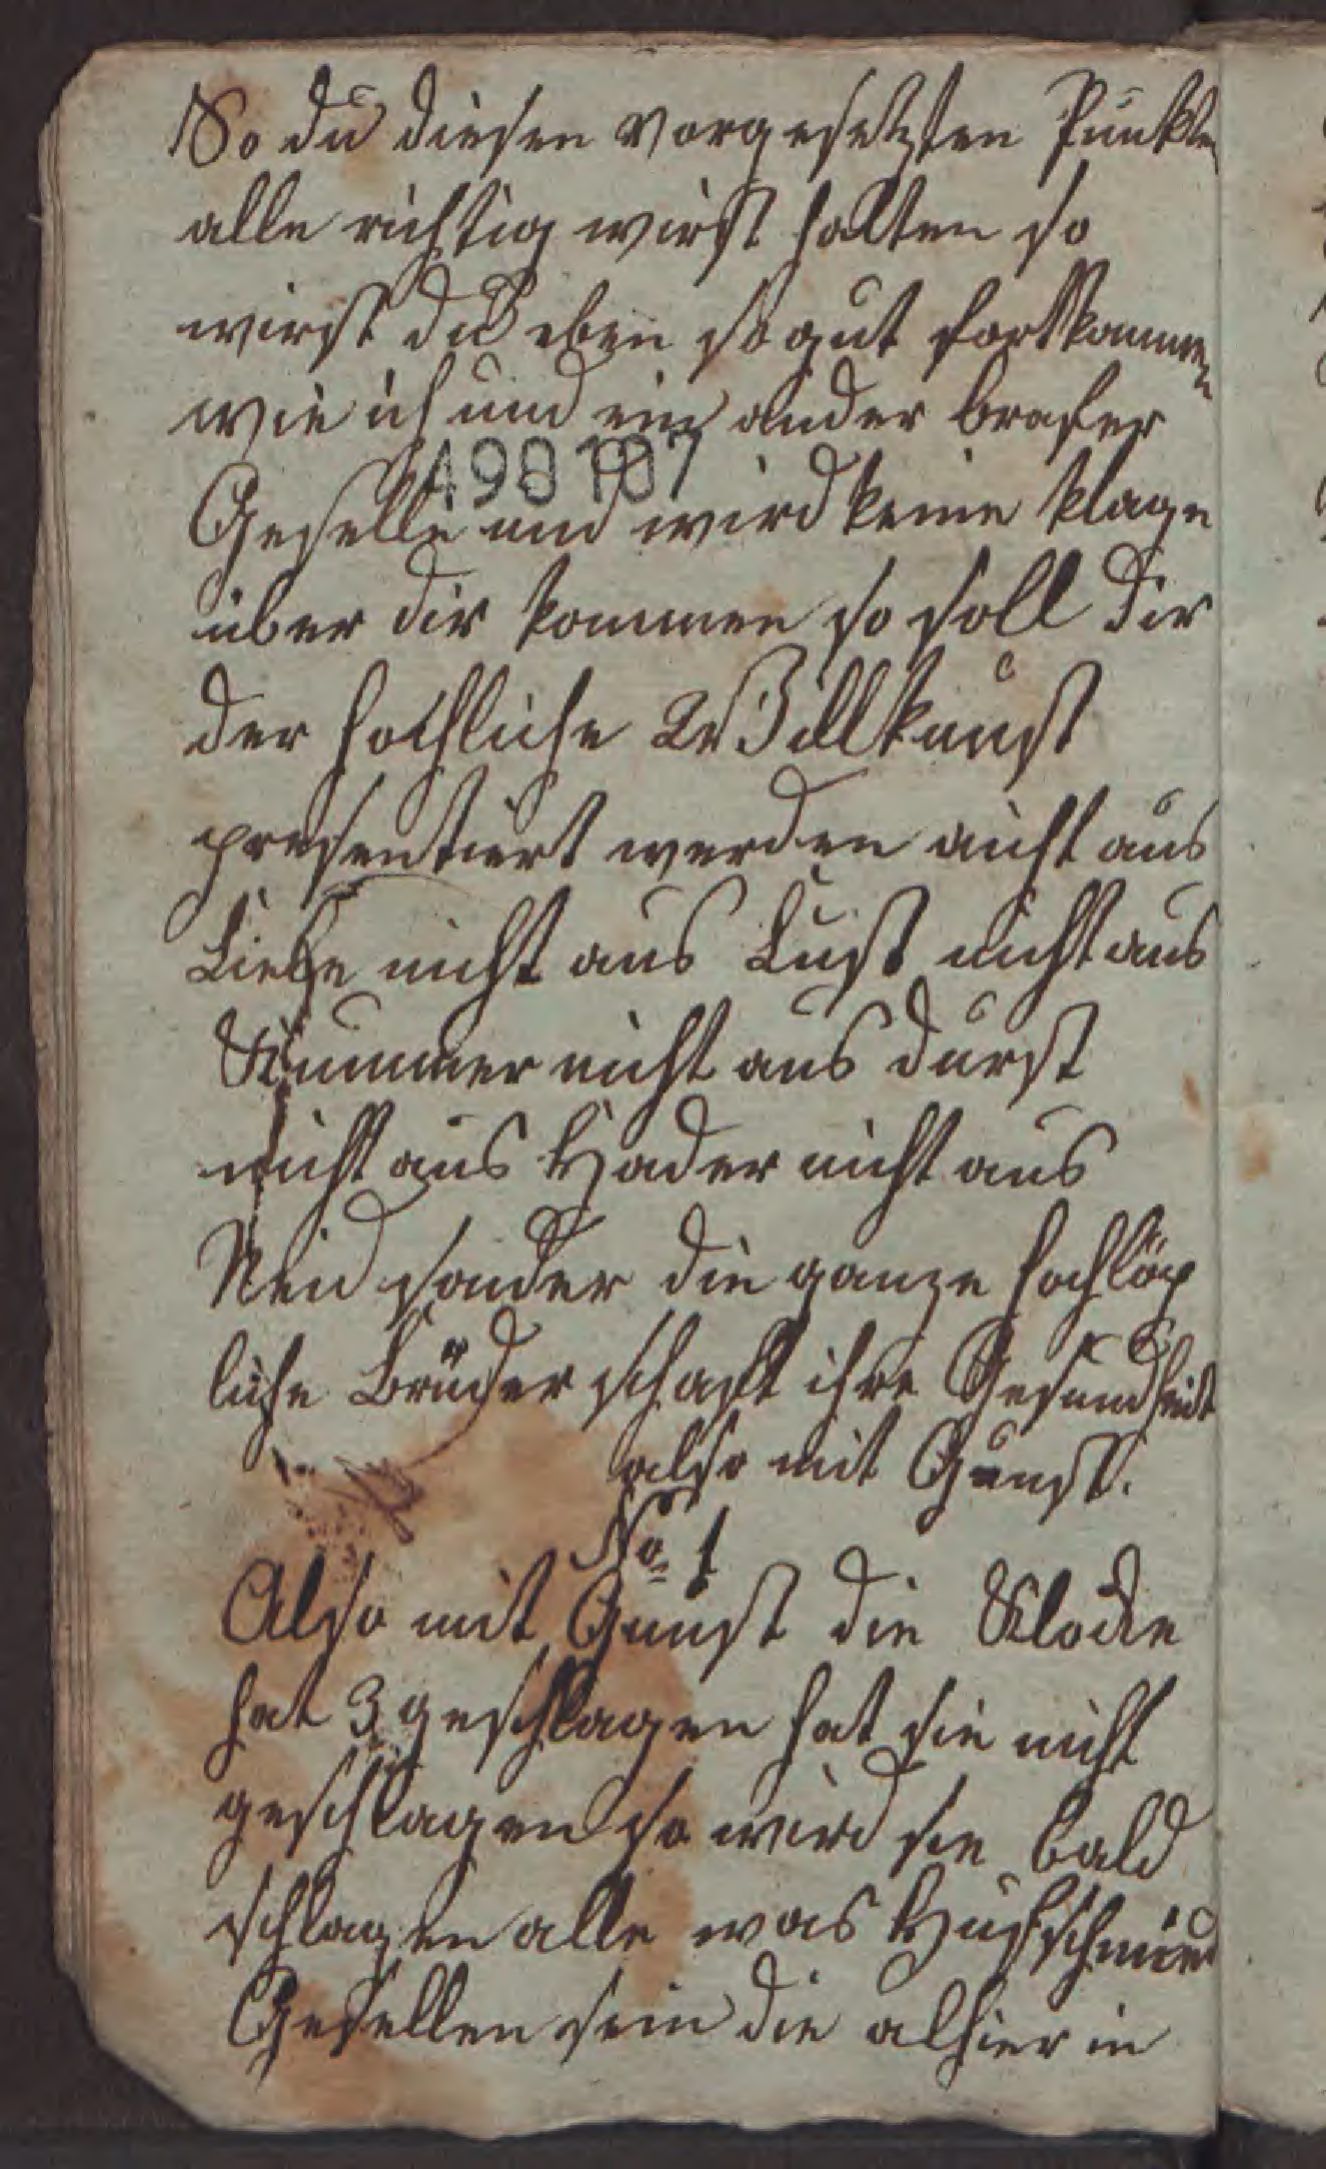 So du diesen vorgesetzten Punkten
alle richtig wirst halten so
wirst du eben so gut fortkommen
wie ich und ein ander brafer
490107
Geselle und wird keine klage
über dir kommen so soll dir
der hochliche Willkunst
presentiert werden nicht aus
Liebe nicht aus Lust nicht aus
Kummer nicht aus durst
nicht aus Hader nicht aus
Neid sonder die ganze hochlöp
liche Brüderschaft ihre Gesundheit
also mit Gunst.
No 1
Also mit Gunst die Klocke
hat 3 geschlagen hat sie nicht
geschlagen so wird sie bald
schlagen alle was Hufschmied
Gesellen sein die alhier in